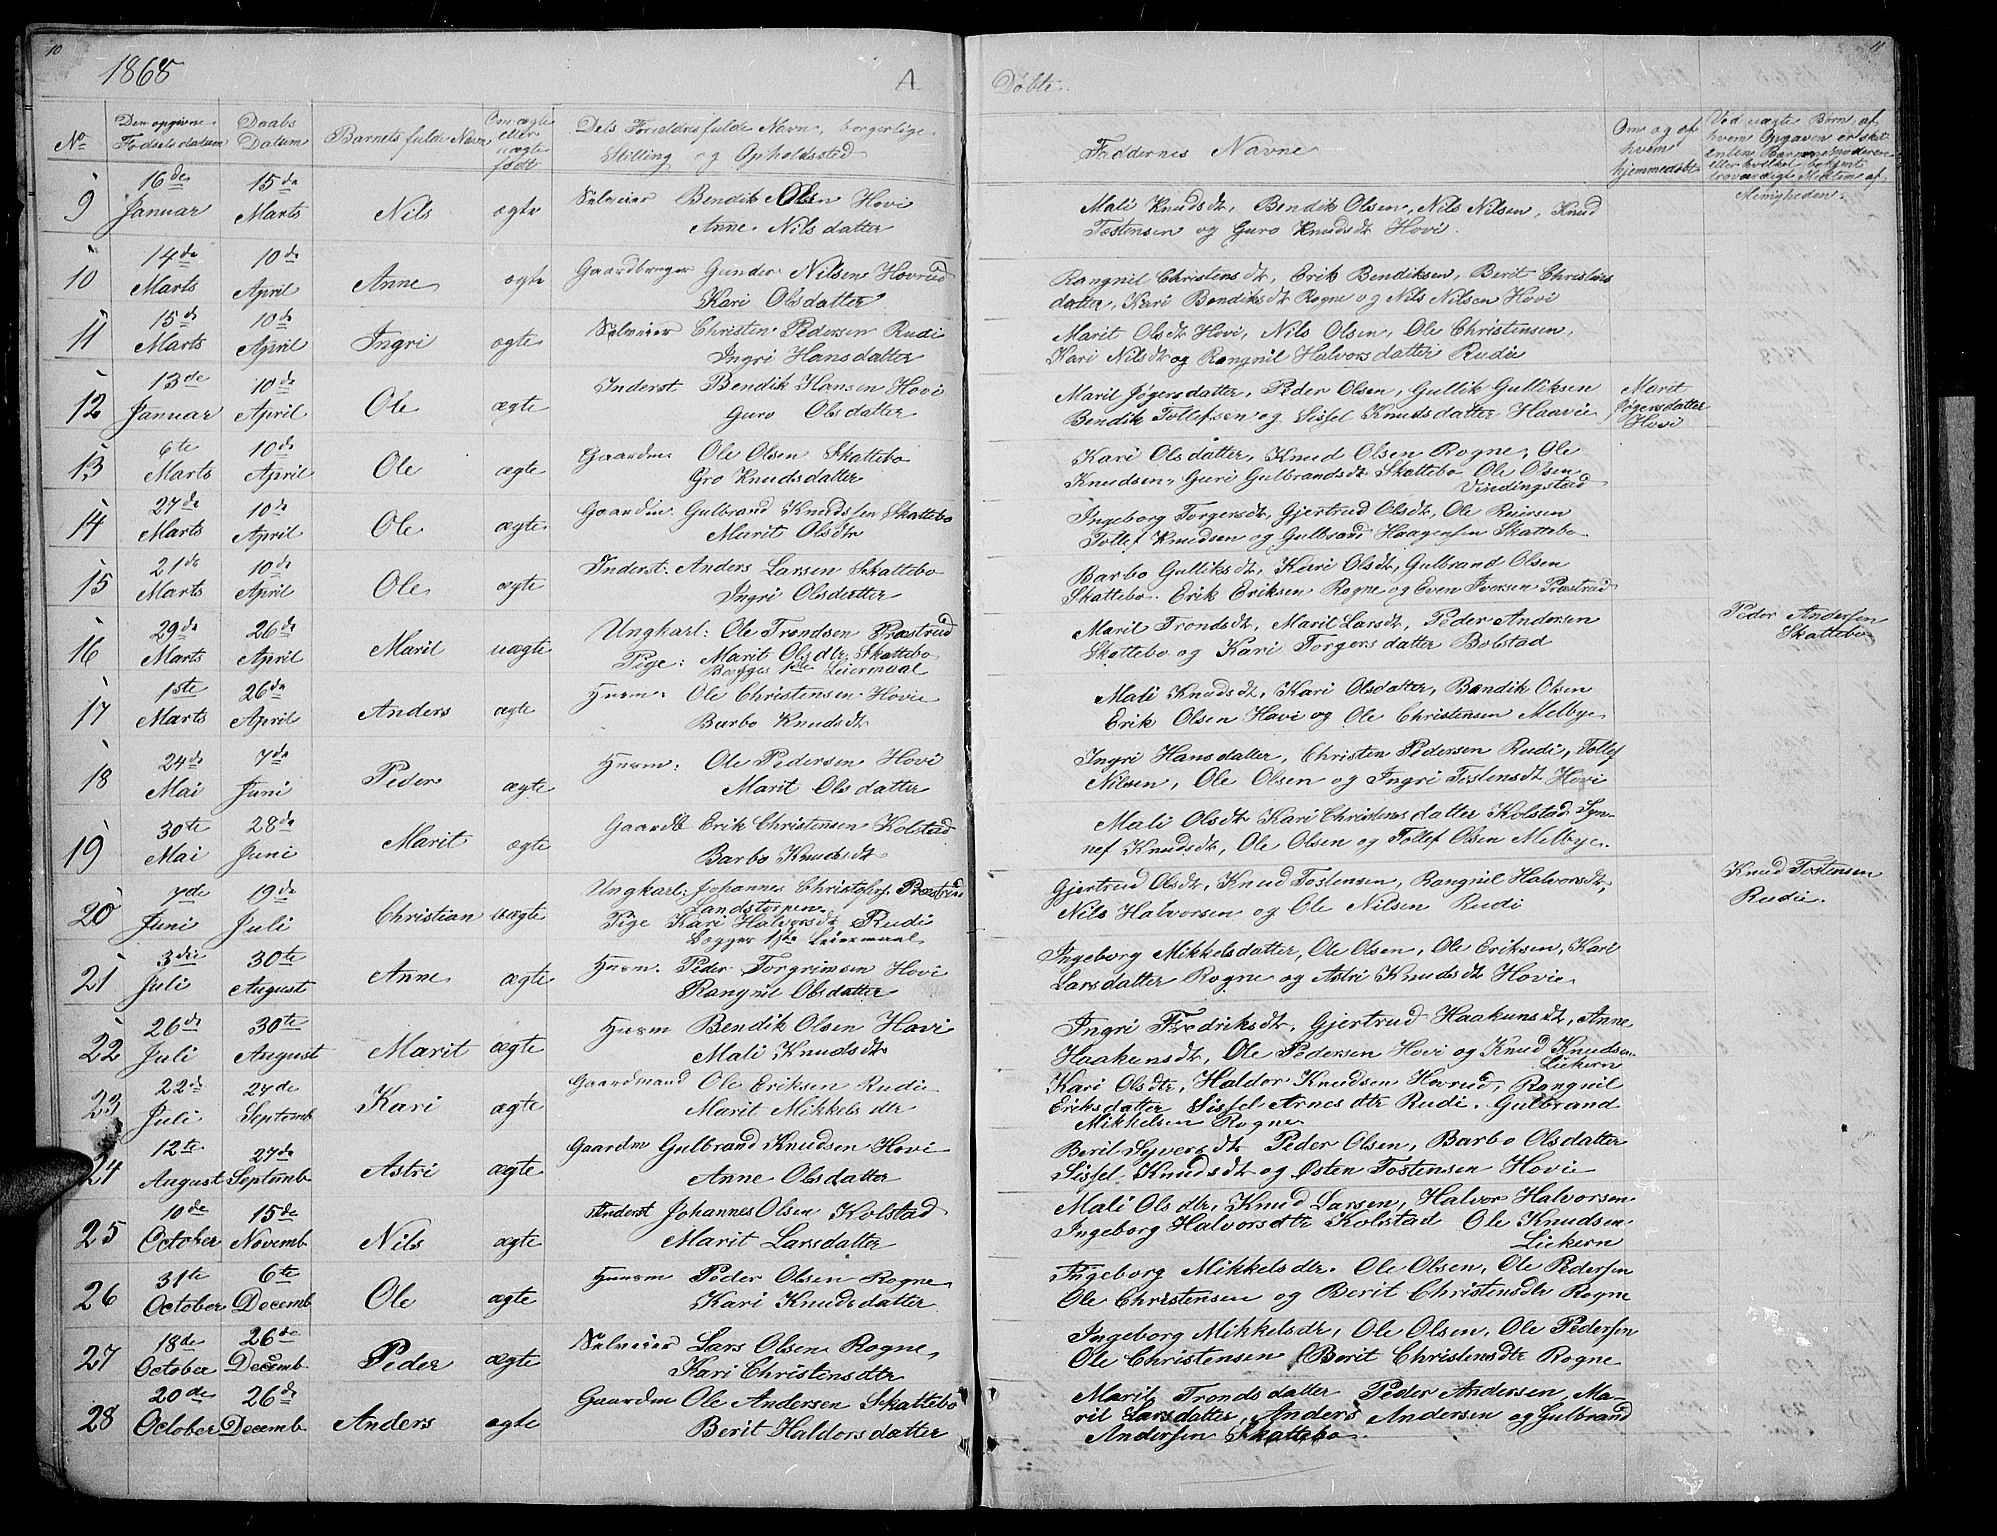 10
1868
A
No
Den opgivne Fødselsdatum
Daabs Datum
Barnets fulde Navn
Om ægte eller uægte født
Dets Forældres fulde Navn, borgerlige Stilling og Opholdssted
9 16de Januar 15de Marts Nils ægte Selveier Bendik Olsen Hovi
Anne Nilsdatter
10 14de Marts 10de April Anne ægte Gaardbruger Gunder Nilsen Hovrud
Kari Olsdatter
11 15de Marts 10de April Ingri ægte Selveier Christen Pedersen Rudi
Ingri Hansdatter
12 13de Januar 10de April Ole ægte Inderst Bendik Hansen Hovi
Guro Olsdatter
13 6te Marts 10de April Ole ægte Gaardm: Ole Olsen Skattebo
Gro Knudsdatter
14 27de Marts 10de April Ole ægte Gaardm: Gulbrand Knudsen Skattebo
Marit Olsdtr
15 21de Marts 10de April Ole ægte Inderst: Anders Larsen Skattebo
Ingri Olsdatter
16 29de Marts 26de April Marit uægte Ungkarl: Ole Trondsen Præstrud
Pige: Marit Olsdtr Skattebo
Begges 1ste Leiermaal
17 1ste Marts 26de April Anders ægte Husm: Ole Christensen Hovie
Barbo Knudsdtr
18 24de Mai 7de Juni Peder ægte Husm: Ole Pedersen Hovi
Marit Olsdatter
19 30te Mai 28de Juni Marit ægte Gaardb Erik Christensen Kolstad
Barbo Knudsdtr
20 7de Juni 19de Juli Christian uægte Ungkarl: Johannes Christofers Præstrud
Landstorpen
Pige Kari Halvorsdtr Rudi
Begges 1ste Leiermaal
21 3die Juli 30te August Anne ægte Husm. Peder Torgrimsen Hovi
Rangnil Olsdatter
22 26de Juli 30te August Marit ægte Husm Bendik Olsen Hovi
Mali Knudsdtr
23 22de Juli 27de Septemb Kari ægte Gaardmand Ole Eriksen Rudi
Marit Mikkelsdtr
24 12te August 27de Septemb Astri ægte Gaardm Gulbrand Knudsen Hovi
Anne Olsdatter
25 10de October 15de Novemb Nils ægte Inderst Johannes Olsen Kolstad
Marit Larsdatter
26 31te October 6te Decemb Ole ægte Husm Peder Olsen Rogne
Kari Knudsdatter
27 18de October 26de Decemb Peder ægte Selveier Lars Olsen Rogne
Kari Christensdtr
28 20de October 26de Decemb Anders ægte Gaardm Ole Andersen Skattebo
Berit Haldorsdatter
11
Døbte.
Faddernes Navne
Om og af hvem hjemmedøbt
Ved uægte Børn, af hvem Opgaven er sket enten Barnemoderen eller hvilket bekjent troværdigt Medlem af Menigheden.
Mali Knudsdtr, Bendik Olsen, Nils Nilsen, Knud
Tostensen og Guro Knudsdtr Hovi.
Rangnil Christensdtr, Erik Bendiksen, Berit Christens
datter, Kari Bendiksdtr Rogne og Nils Nilsen Hovi
Marit Olsdtr Hovi, Nils Olsen, Ole Christensen,
Kari Nilsdtr og Rangnil Halvorsdatter Rudi
Maril Jøgersdatter, Peder Olsen, Gullik Gulliksen
Bendik Tollefsen og Sissel Knudsdatter Haavie
Marit Jøgersdatter Hovi
Kari Olsdatter, Knud Olsen Rogne, Ole
Knudsen, Guri Gulbrandsdtr Skattebo Ole Olsen
Vindingstad
Ingeborg Torgersdtr, Gjertrud Olsdtr, Ole Reiersen
Tollef Knudsen og Gulbrand Haagensen Skattebo
Barbo Gulliksdtr, Kari Olsdtr, Gulbrand Olsen
Skattebo. Erik Eriksen Rogne og Even Iversen Præstrud
Maril Trondsdtr, Maril Larsdtr, Peder Andersen
Skattebo og Kari Torgersdatter Bolstad
Peder Andersen
Skattebo
Mali Knudsdtr, Kari Olsdatter, Bendik Olsen
Erik Olsen Hovi og Ole Christensen Melbye
Ingri Hansdatter, Christen Pedersen Rudi, Tollef
Nilsen, Ole Olsen og Ingri Tostensdtr Hovi
Mali Olsdtr Kari Christensdatter Kolstad Syn-
nef Knudsdtr, Ole Olsen og Tollef Olsen Melbye.
Gjertrud Olsdtr, Knud Tostensen, Rangnil Halvorsdtr,
Nils Halvorsen og Ole Nilsen Rudi
Knud Tostensen
Rudie.
Ingeborg Mikkelsdatter, Ole Olsen, Ole Eriksen, Kari
Larsdatter Rogne og Astri Knudsdtr Hovie.
Ingri Fredriksdtr, Gjertrud Haakunsdtr, Anne
Haakunsdtr, Ole Pedersen Hovi og Knud Knudsen
Liekern
Kari Olsdtr, Haldor Knudsen Hovrud, Rangnil
Eriksdatter Sissel Arnesdtr Rudi. Gulbrand
Mikkelsen Rogne
Beril Syversdtr Peder Olsen, Barbo Olsdatter
Sissel Knudsdtr og Østen Tostensen Hovie
Mali Olsdtr, Knud Larsen, Halvor Halvorsen
Ingeborg Halvorsdtr Kolstad Ole Knudsen
Liekern
Ingeborg Mikkelsdtr. Ole Olsen, Ole Pedersen
Ole Christensen og Berit Christensdtr Rogne
Ingeborg Mikkelsdtr, Ole Olsen, Ole Pedersen
Ole Christensen Berit Christensdtr Rogne
Maril Trondsdatter Peder Andersen, Ma-
ril Larsdatter, Anders Andersen og Gulbrand
Andersen Skattebo.